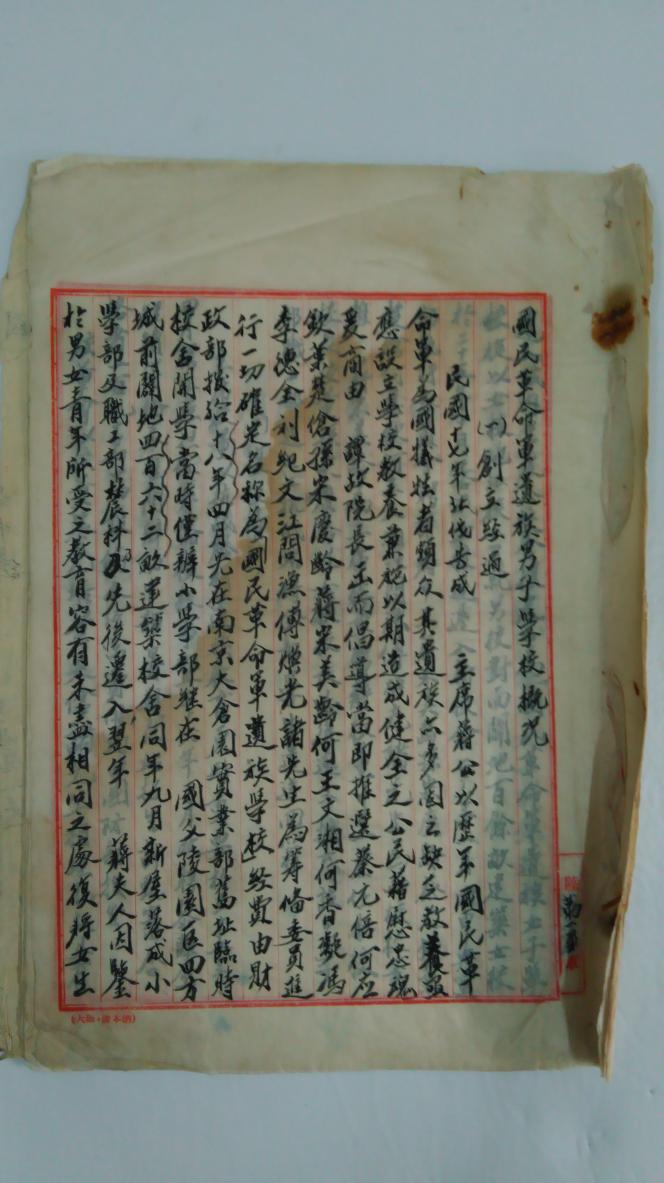 國民革命軍遺族男子學校概况
(一)創立經過
民國十七年北伐告成 主席蔣公以歷年國民革
命軍為國犧牲者頗衆其遺族亦多因之缺乏教養亟
應設立學校教養兼施以期造成健全之公民藉慰忠魂
爰商由 譚故院長正而倡導當即推選蔡元培何应
欽葉楚傖孫宋慶齡蔣宋美齡何王文湘何香凝馮
李德全刘紀文江問漁傅煥光諸先生為籌備委員進
行一切確定名称為國民革命軍遺族學校經費由財
政部撥給十八年四月先在南京大倉園實業部舊址臨時
校舍開學當時僅辦小學部繼在 國父陵園區四方
城前闢地四百六十二畝建築校舍同年九月新屋落成小
學部及職工部農科乃先後遷入翌年 蔣夫人因鑒
於男女青年所受之教育容有未盡相同之處復將女生